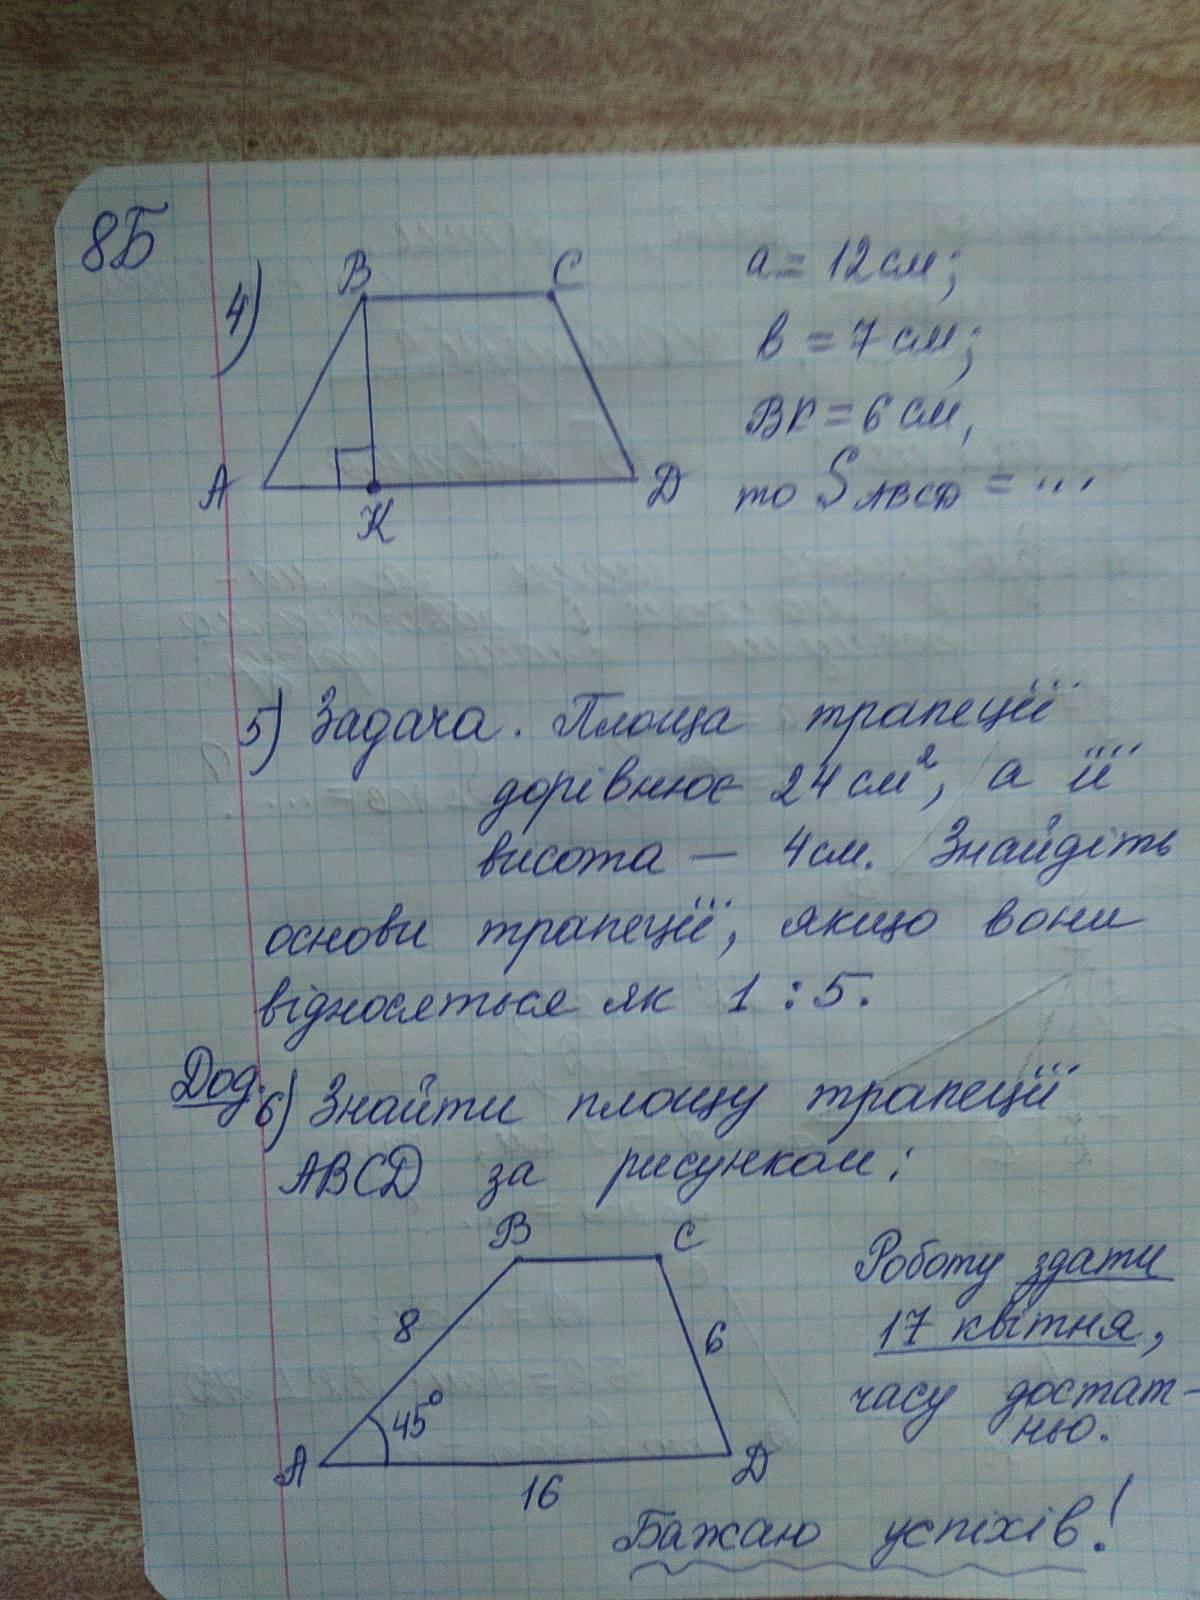 8Б
4)
B C
A K D
a = 12 см;
в = 7 см;
BK = 6 см,
то S ABCD = ...
5) Задача. Площа трапеції
дорівнює 24 см², а її
висота — 4 см. Знайдіть
основи трапеції, якщо вони
відносяться як 1 : 5.
Дод. 6) Знайти площу трапеції
ABCD за рисунком:
B C
8 6
45°
A D
16
Роботу здати
17 квітня,
часу достат-
ньо.
Бажаю успіхів!